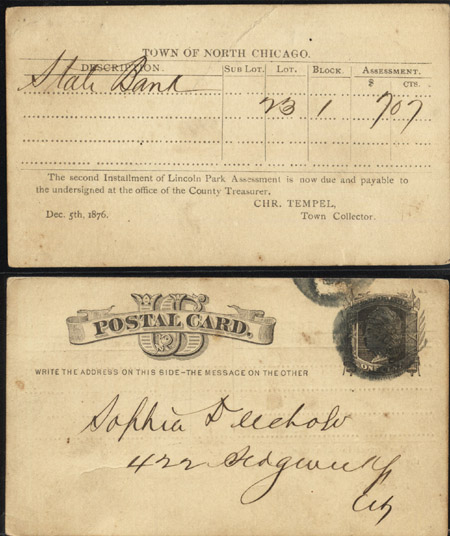 TOWN OF NORTH CHICAGO.
DESCRIPTION. SUB LOT. LOT. BLOCK. ASSESSMENT.
$ CTS.
State Bank
23 1 707
The second Installment of Lincoln Park Assessment is now due and payable to
the undersigned at the office of the County Treasurer.
CHR. TEMPEL,
Dec. 5th, 1876. Town Collector.
US
POSTAL CARD.
WRITE THE ADDRESS ON THIS SIDE–THE MESSAGE ON THE OTHER
Sophia
422 Sedgwick
City